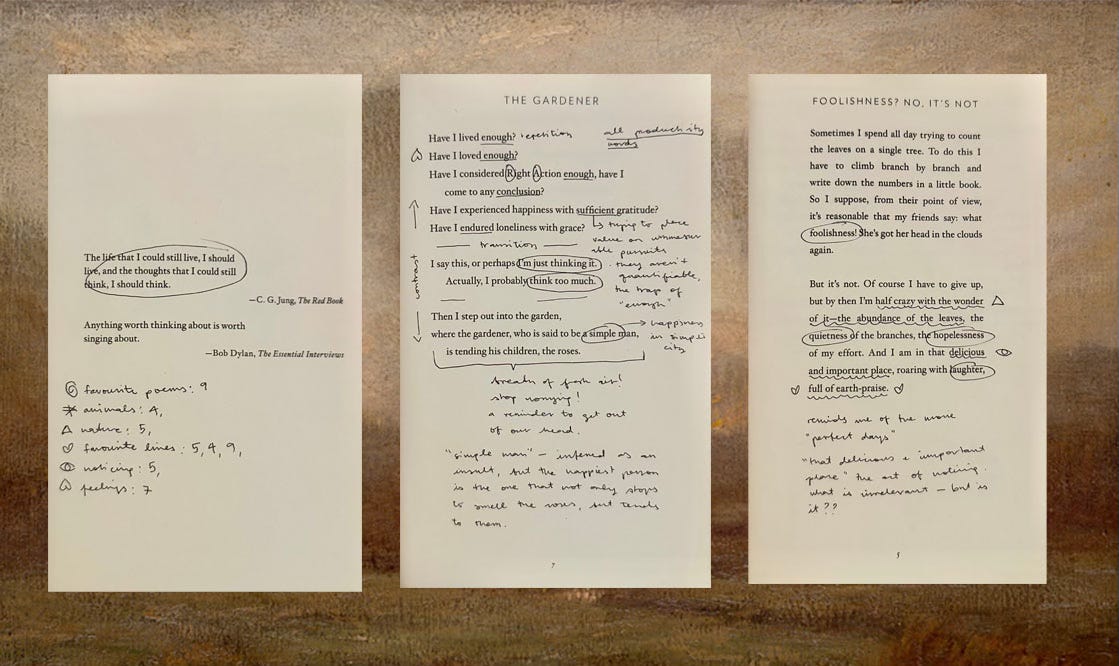 The life that I could still live, I should
live, and the thoughts that I could still
think, I should think.
—C. G. Jung, The Red Book
Anything worth thinking about is worth
singing about.
—Bob Dylan, The Essential Interviews
favourite poems: 9
animals: 4,
nature: 5,
favourite lines: 5, 4, 9,
noticing: 5,
feelings: 7
THE GARDENER
Have I lived enough? repetition
all productivity
words
Have I loved enough?
Have I considered Right Action enough, have I
come to any conclusion?
Have I experienced happiness with sufficient gratitude?
Have I endured loneliness with grace?
trying to place
value on unmeasur
able pursuits
transition
I say this, or perhaps I'm just thinking it.
they aren't
Actually, I probably think too much.
quantifiable,
the trap of
"enough"
contrast
Then I step out into the garden,
where the gardener, who is said to be a simple man,
happiness
in simpli
city
is tending his children, the roses.
breath of fresh air!
stop worrying!
a reminder to get out
of our head.
"simple man" – inferred as an
insult, but the happiest person
is the one that not only stops
to smell the roses, but tends
to them.
7
FOOLISHNESS? NO, IT'S NOT
Sometimes I spend all day trying to count
the leaves on a single tree. To do this I
have to climb branch by branch and
write down the numbers in a little book.
So I suppose, from their point of view,
it's reasonable that my friends say: what
foolishness! She's got her head in the clouds
again.
But it's not. Of course I have to give up,
but by then I'm half crazy with the wonder
of it—the abundance of the leaves, the
quietness of the branches, the hopelessness
of my effort. And I am in that delicious
and important place, roaring with laughter,
full of earth-praise.
reminds me of the movie
"perfect days"
"that delicious & important
place" the art of noticing.
what is irrelevant – but is
it??
5